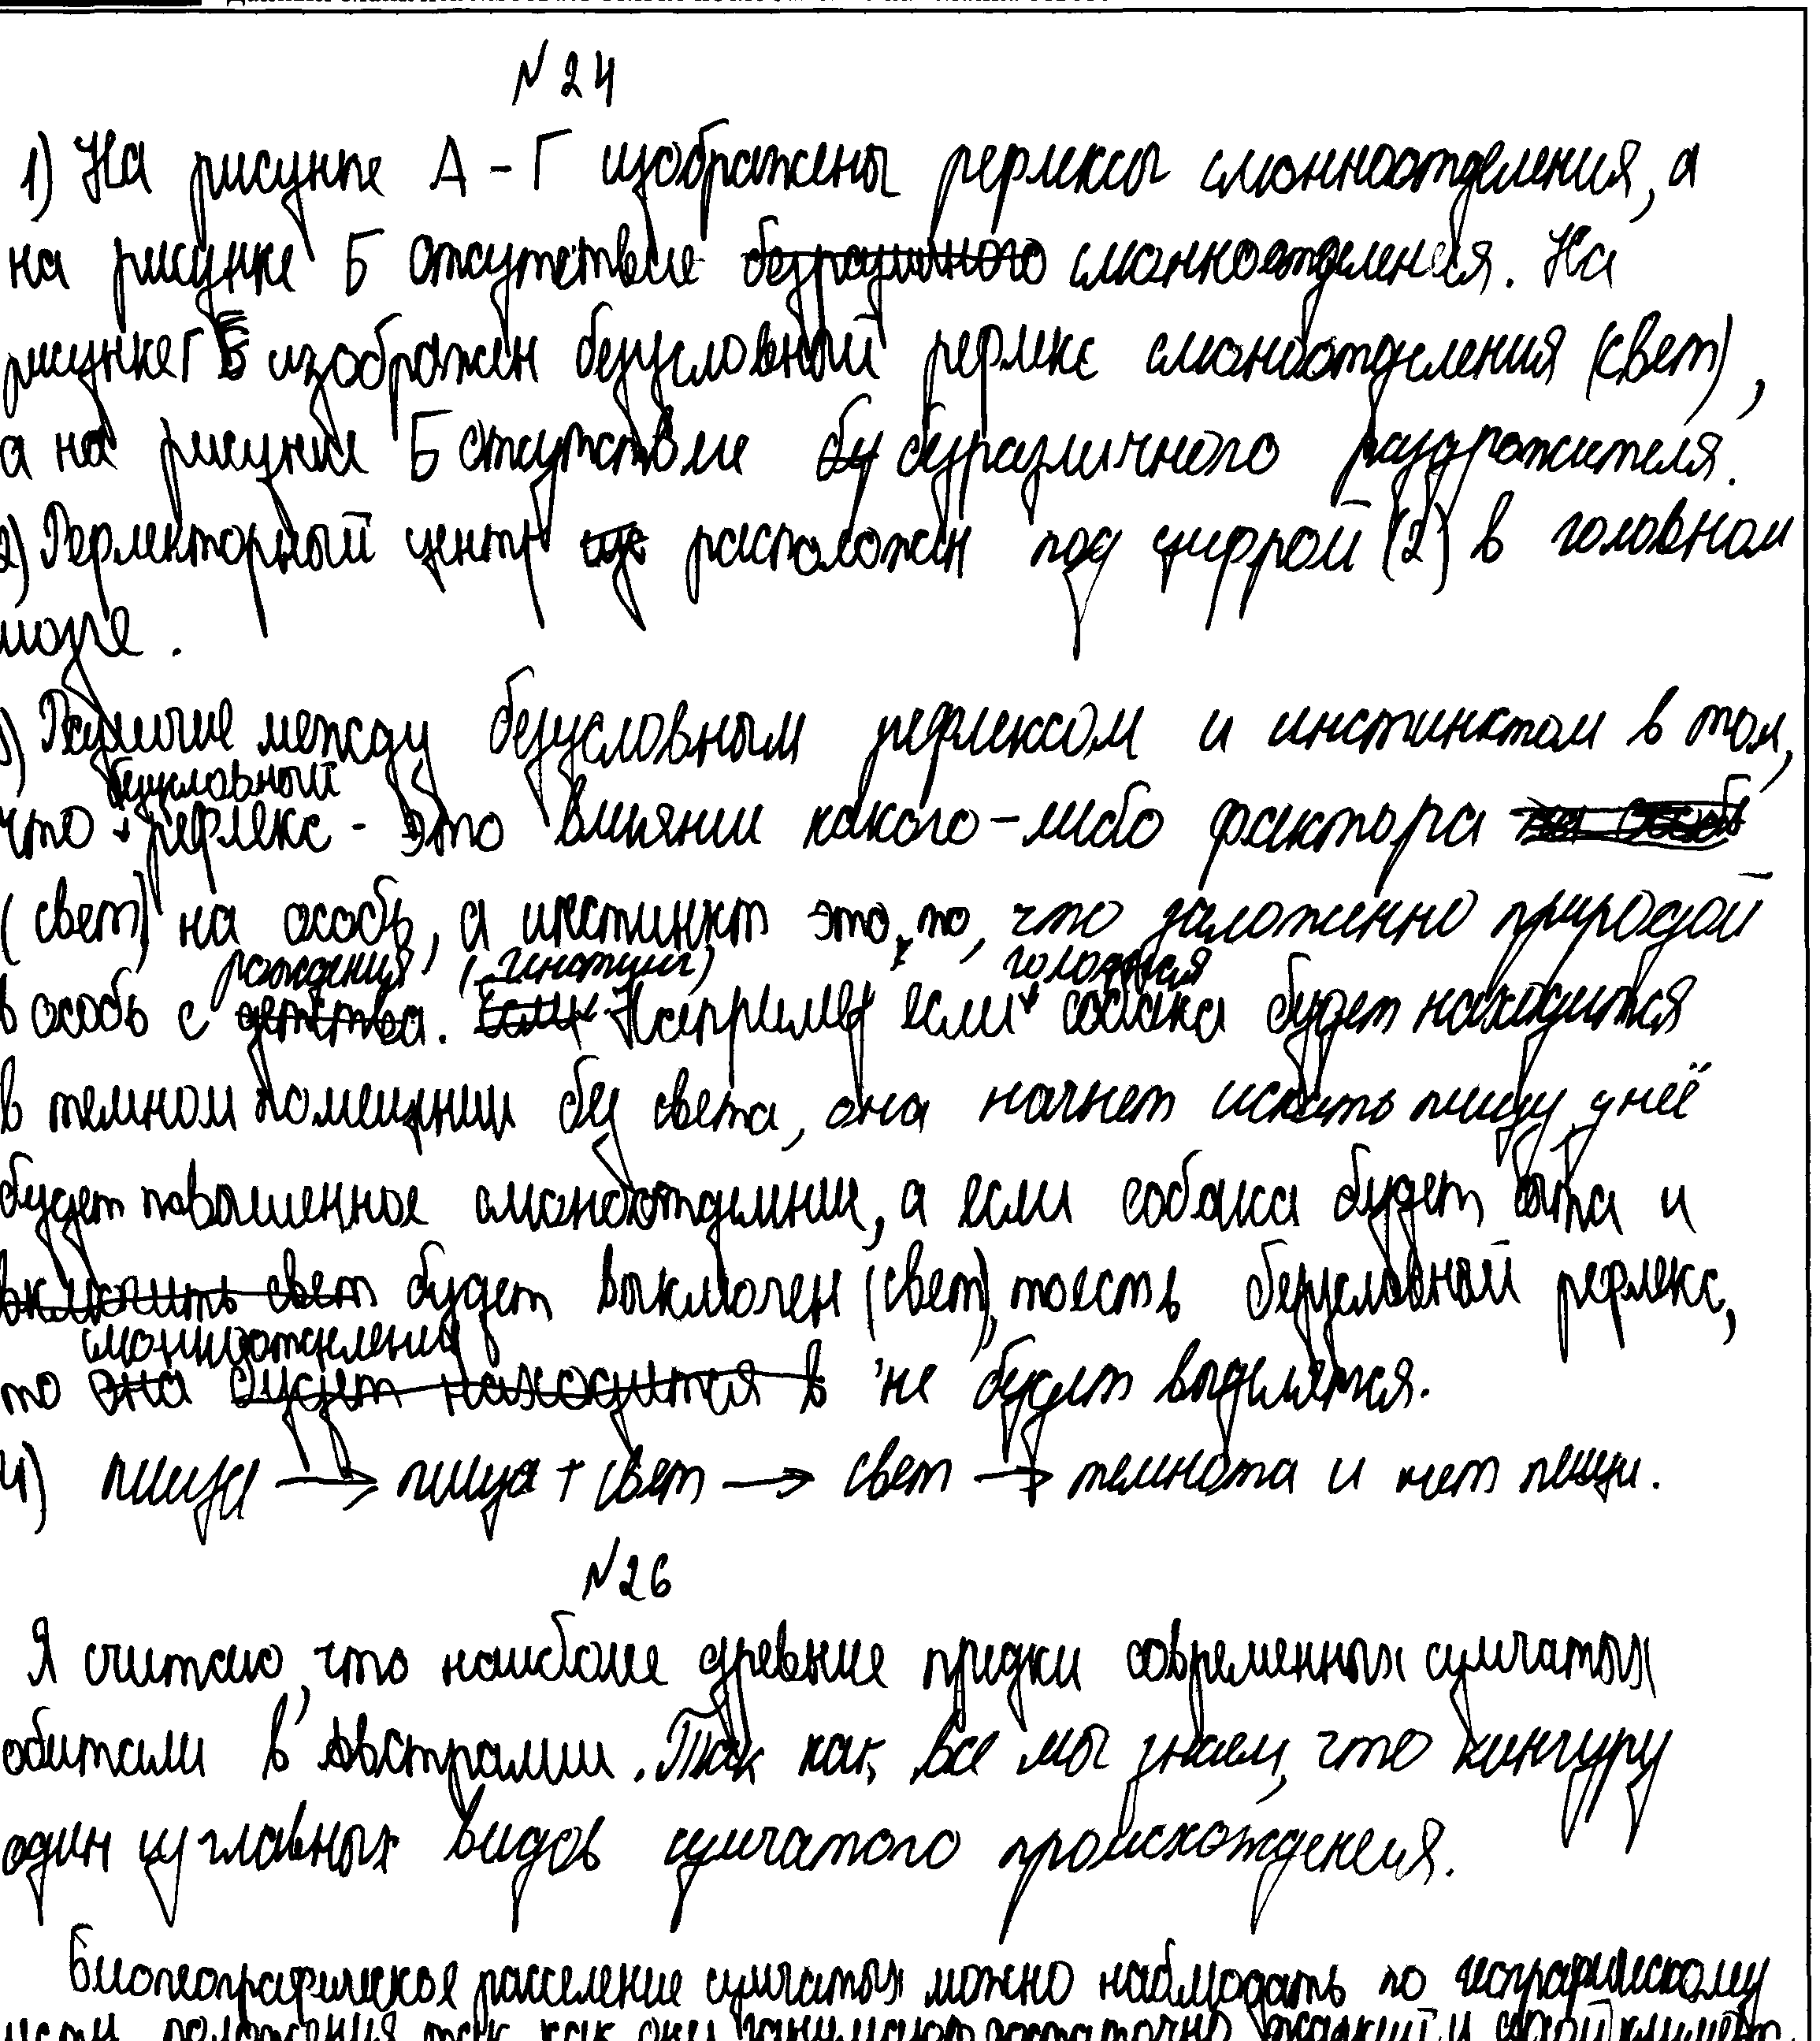 № 24
1) На рисунке А - Г изображены рефлексы слюнноотделения, а
на рисунке Б отсутствие безразличного слюнноотделения. На
рисунке Г Б изображен безусловный рефлекс слюноотделения (свет),
а на рисунке Б отсутствие бу безразличного раздражителя.
2) Рефлекторный центр расположен под цифрой (2) в головном
мозге.
3) Различие между безусловным рефлексом и инстинктом в том,
безусловный
что рефлекс - это влиянии какого-либо фактора на особь
(свет) на особь, а инстинкт это, то, что заложенно природой
рождения (генотип) голодная
в особь с детства. Если Например если собака будет находится
в темном помещении без света, она начнет искать пищу, у неё
будет повышенное слюноотделении, а если собака будет сыта и
включить свет будет выключен (свет), тоесть безусловный рефлекс,
слюнноотделений
то она будет находится в не будет выделятся.
4) пища → пища + свет → свет → темнота и нет пищи.
№ 26
Я считаю, что наиболее древние предки современных сумчатых
обитали в Австралии. Так как, все мы знаем, что кенгуру
один из главных видов сумчатого происхождения.
Биогеографическое расселение сумчатых можно наблюдать по географическому
положения так как они занимают достаточно жаркий и сухой климат.